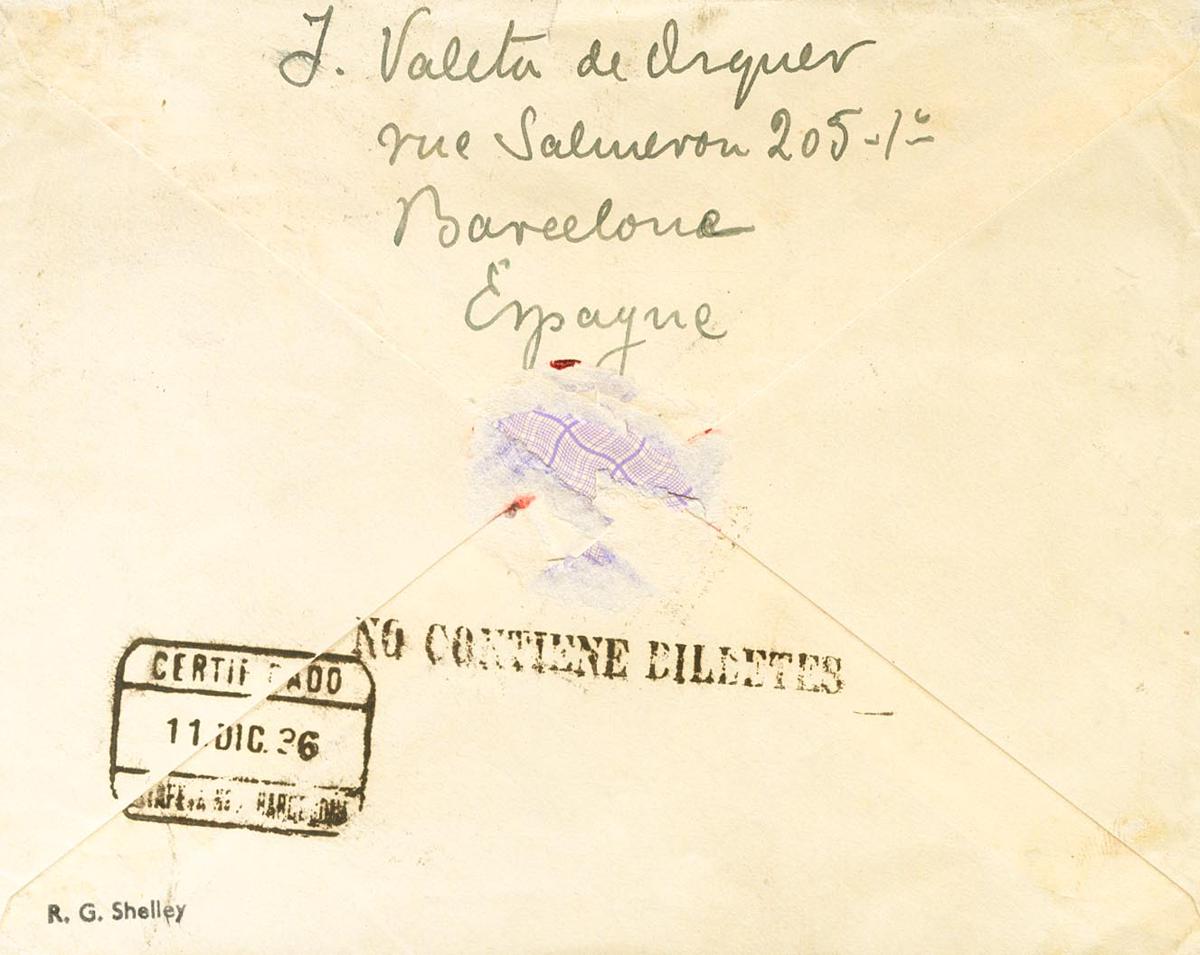 J. Valeta de Orquer
rue Salmeron 205-1º
Barcelone
Espagne
NO CONTIENE BILLETES
CERTIFICADO
11 DIC. 36
BARCELONA
R. G. Shelley